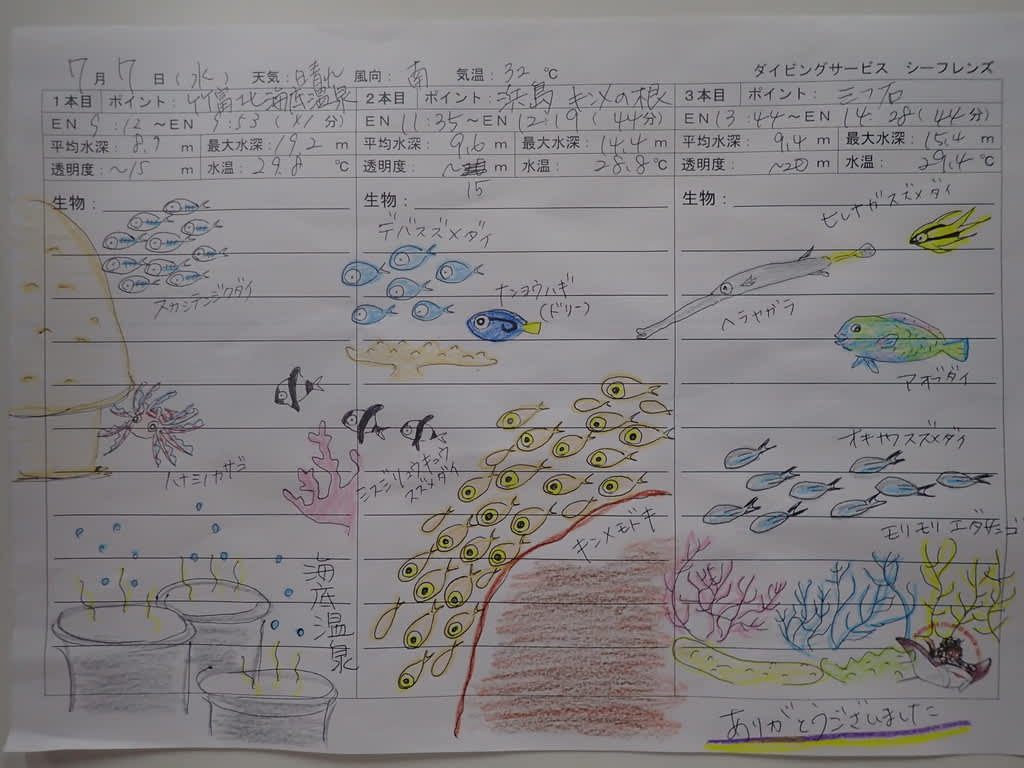 7月7日(水) 天気:晴れ 風向:南 気温:32℃ ダイビングサービス シーフレンズ
1本目 ポイント:竹富北海底温泉
EN 9:12~EN 9:53(41分)
平均水深:8.7m 最大水深:19.2m
透明度:~15m 水温:29.8℃
生物:
スカシテンジクダイ
ハナミノカサゴ
海底温泉
2本目 ポイント:浜島 キンメの根
EN 11:35~EN 12:19(44分)
平均水深:9.6m 最大水深:14.4m
透明度:~15m 水温:28.8℃
生物:
デバスズメダイ
ナンヨウハギ
(ドリー)
ミスジリュウキュウ
スズメダイ
キンメモドキ
3本目 ポイント:三ツ石
EN 13:44~EN 14:28(44分)
平均水深:9.4m 最大水深:15.4m
透明度:~20m 水温:29.4℃
生物:
ヒレナガスズメダイ
ヘラヤガラ
アオブダイ
オキナワスズメダイ
モリモリ エダサンゴ
ありがとうございました